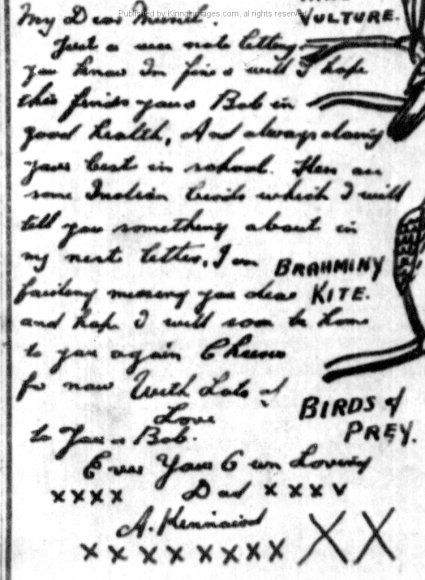 Published by Kinnaimages.com, all rights reserved
My Dear
VULTURE.
Just a wee note letting
you know Im fine & well I hope
this finds you & Bob in
good health, And always doing
your best in school. Here are
some Indian birds which I will
tell you something about in
my next letter, I am
BRAHMINY
KITE.
missing you dear
and hope I will soon be home
to you again Cheerio
for now With Lots of
Love
BIRDS of
PREY.
to You & Bob.
Ever Your Own Loving
xxxx Dad xxxx
A.
x x x x x x x x X X